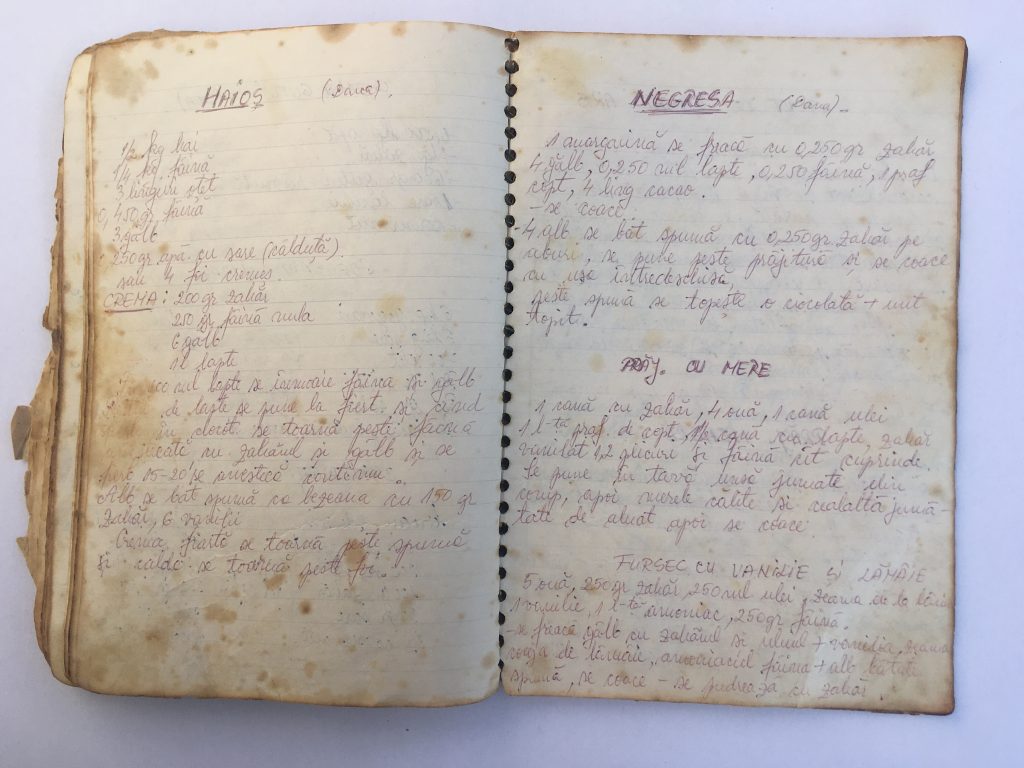 HAIOȘ
1/2 kg hai
1/4 kg făină
3 linguri oțet
0,450 gr. făină
3 gălb
250 gr. apă cu sare (călduță).
sau 4 foi cremeș.
CREMA: 200 gr zahăr
250 gr. făină nula
6 gălb
1 l lapte
lapte se înmoaie făina și gălb
de lapte se pune la fiert și când
în clocot se toarnă peste făina
cu zahărul și gălb și se
15-20' se amestecă continuu.
Alb se bat spumă ca bezeaua cu 150 gr
zahăr, 6 vanilii
Crema fiartă se toarnă peste spumă
și caldă se toarnă peste foi.
NEGRESA (Dana).
1 margarină se freacă cu 0,250 gr zahăr
4 gălb, 0,250 mil lapte, 0,250 făină, 1 praf
copt, 4 ling cacao.
- se coace
- 4 alb se bat spumă cu 0,250 gr. zahăr pe
aburi, se pune peste prăjitură și se coace
cu ușa întredeschisă,
peste spumă se topește o ciocolată + unt
topit.
PRĂJ. CU MERE
1 cană cu zahăr, 4 ouă, 1 cană ulei
1 l-ță praf. de copt, 1/2 cană cu lapte, zahăr
vanilat 1,2 plicuri și făină cît cuprinde.
Se pune în tavă unsă jumate din
comp, apoi merele călite și cealaltă jumă-
tate de aluat apoi se coace
FURSEC CU VANILIE ȘI LĂMÂIE
5 ouă, 250 gr zahăr, 250 mil ulei, zeama de la
1 vanilie, 1 l-ță amoniac, 250 gr făină.
- se freacă gălb cu zahărul și uleiul + vanilia, zeama
coaja de lămâie, amoniacul făina + alb bătute
spumă, se coace - se pudrează cu zahăr.